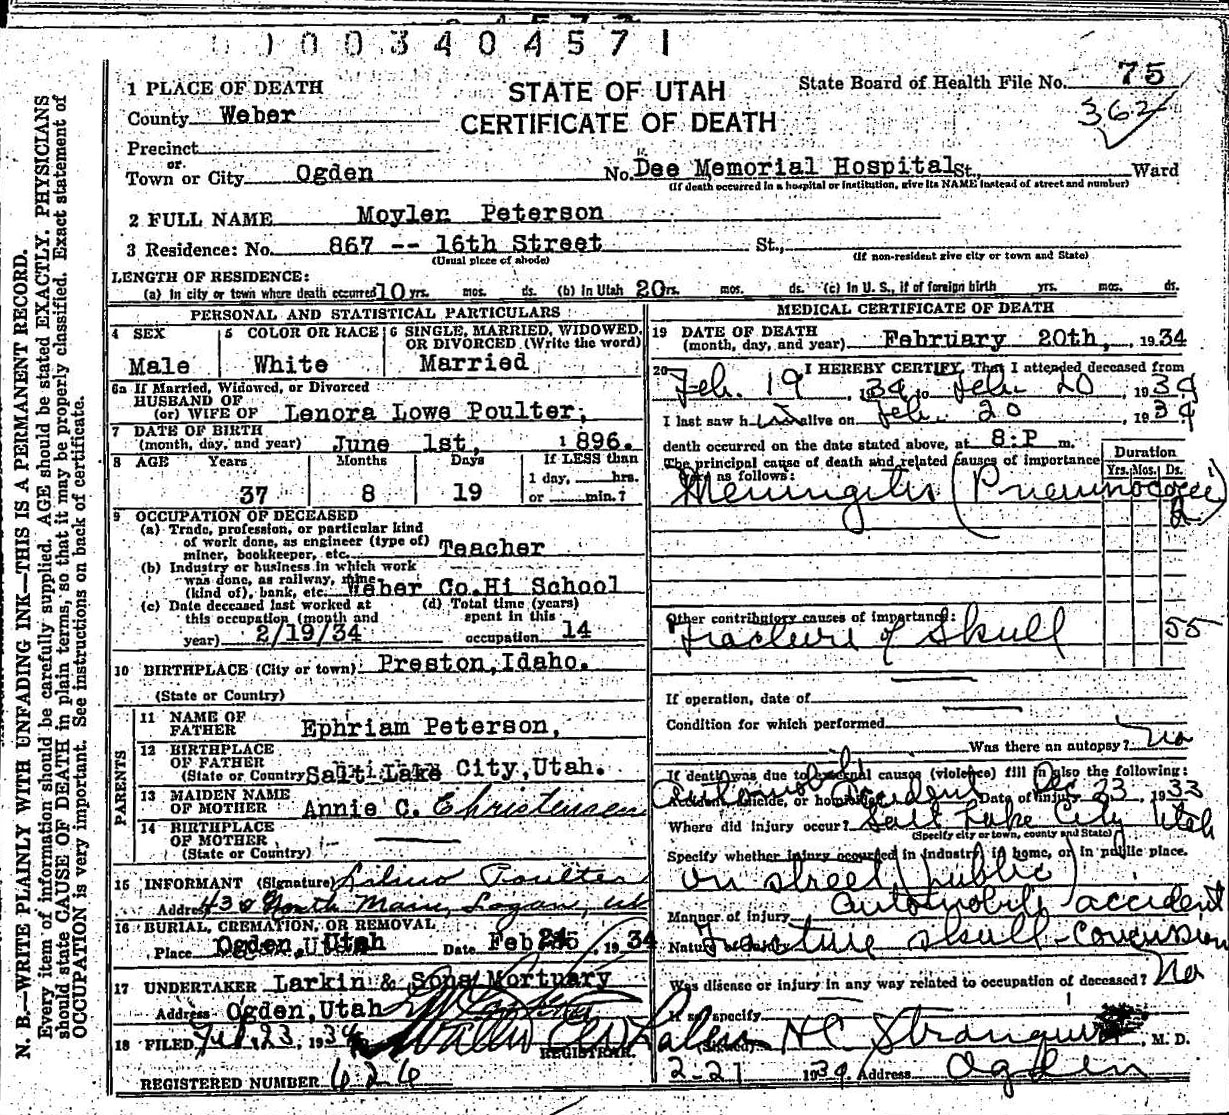 0 0 0 3 4 0 4 5 7 1
1 PLACE OF DEATH
STATE OF UTAH
State Board of Health File No. 75
County Weber
CERTIFICATE OF DEATH
362
Precinct
or
Town or City Ogden No. Dee Memorial Hospital St., Ward
(If death occurred in a hospital or institution, give its NAME instead of street and number)
2 FULL NAME Moyler Peterson
3 Residence: No. 867 -- 16th Street St.,
(Usual place of abode) (If non-resident give city or town and State)
LENGTH OF RESIDENCE:
(a) In city or town where death occurred 10 yrs. mos. ds. (b) In Utah 20 rs. mos. ds. (c) In U. S., if of foreign birth yrs. mos. ds.
PERSONAL AND STATISTICAL PARTICULARS
4 SEX
Male
5 COLOR OR RACE
White
6 SINGLE, MARRIED, WIDOWED,
OR DIVORCED (Write the word)
Married
6a If Married, Widowed, or Divorced
HUSBAND OF
(or) WIFE OF Lenora Lowe Poulter,
7 DATE OF BIRTH
(month, day, and year) June 1st, 1896.
8 AGE Years Months Days If LESS than
1 day, hrs.
37 8 19 or min.?
9 OCCUPATION OF DECEASED
(a) Trade, profession, or particular kind
of work done, as engineer (type of)
miner, bookkeeper, etc. Teacher
(b) Industry or business in which work
was done, as railway, mine
(kind of), bank, etc. Weber Co.Hi School
(c) Date deceased last worked at
this occupation (month and
year) 2/19/34
(d) Total time (years)
spent in this
occupation 14
10 BIRTHPLACE (City or town) Preston,Idaho.
(State or Country)
PARENTS
11 NAME OF
FATHER Ephriam Peterson,
12 BIRTHPLACE
OF FATHER
(State or Country) Salt Lake City,Utah.
13 MAIDEN NAME
OF MOTHER Annie C. Christensen
14 BIRTHPLACE
OF MOTHER
(State or Country)
15 INFORMANT (Signature) Poulter
Address North Main, Logan, Ut
16 BURIAL, CREMATION, OR REMOVAL
Place Ogden, Utah Date Feb , 1934
17 UNDERTAKER Larkin & Sons Mortuary
Address Ogden,Utah
18 FILED Feb 23, 1934
REGISTRAR.
REGISTERED NUMBER 626
MEDICAL CERTIFICATE OF DEATH
19 DATE OF DEATH
(month, day, and year) February 20th, , 1934
20 I HEREBY CERTIFY, That I attended deceased from
Feb. 19 , 1934 to Feb. 20 , 1934
I last saw him alive on Feb. 20 , 1934
death occurred on the date stated above, at 8:P m.
The principal cause of death and related causes of importance
were as follows:
Duration
Yrs. Mos. Ds.
Meningitis (Pneumococci)
2
Other contributory causes of importance:
Fracture of Skull 55
If operation, date of
Condition for which performed
Was there an autopsy? No
If death was due to external causes (violence) fill in also the following:
Accident, suicide, or homicide Automobile Accident Date of injury Dec 23 , 1933
Where did injury occur? Salt Lake City Utah
(Specify city or town, county and State)
Specify whether injury occurred in industry, in home, or in public place.
On street (public)
Manner of injury Automobile accident
Nature of injury Fracture skull - concussion
Was disease or injury in any way related to occupation of deceased? No
If so, specify
(Signed) , M. D.
2-21 1934 Address Ogden
N. B.—WRITE PLAINLY WITH UNFADING INK—THIS IS A PERMANENT RECORD.
Every item of information should be carefully supplied. AGE should be stated EXACTLY. PHYSICIANS
should state CAUSE OF DEATH in plain terms, so that it may be properly classified. Exact statement of
OCCUPATION is very important. See instructions on back of certificate.